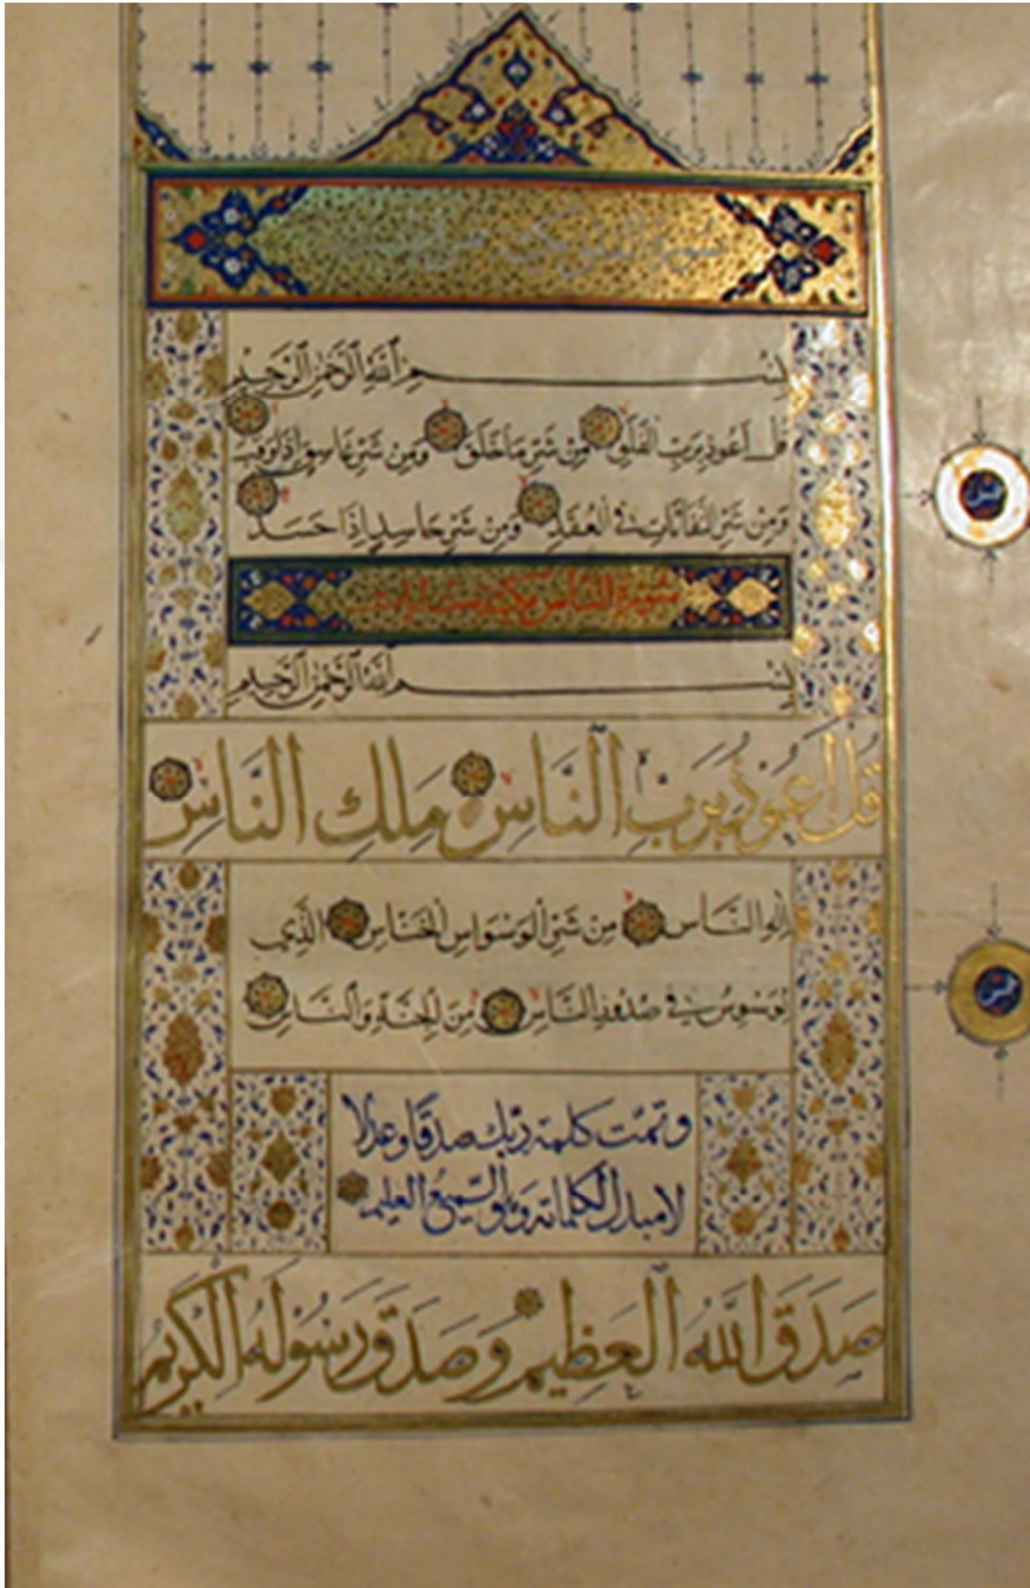 سورة الفلق مكية وهي خمس
بسم الله الرحمن الرحيم
قل أعوذ برب الفلق من شر ما خلق ومن شر غاسق إذا وقب
ومن شر النفاثات في العقد ومن شر حاسد إذا حسد
سورة الناس مكية وهي ست آيات
بسم الله الرحمن الرحيم
قُل اعوذ برب النَّاسِ مَلِكِ النَّاسِ
إله النَّاس من شر الوسواس الخناس الذي
يوسوس في صدور الناس من الجنة والناس
وتمت كلمة ربك صدقا وعدلا
لا مبدل لكلماته وهو السميع العليم
صَدَقَ اللَّهُ العَظِيمُ وَصَدَقَ رَسُولُهُ الكَرِيمُ
خمس
خمس